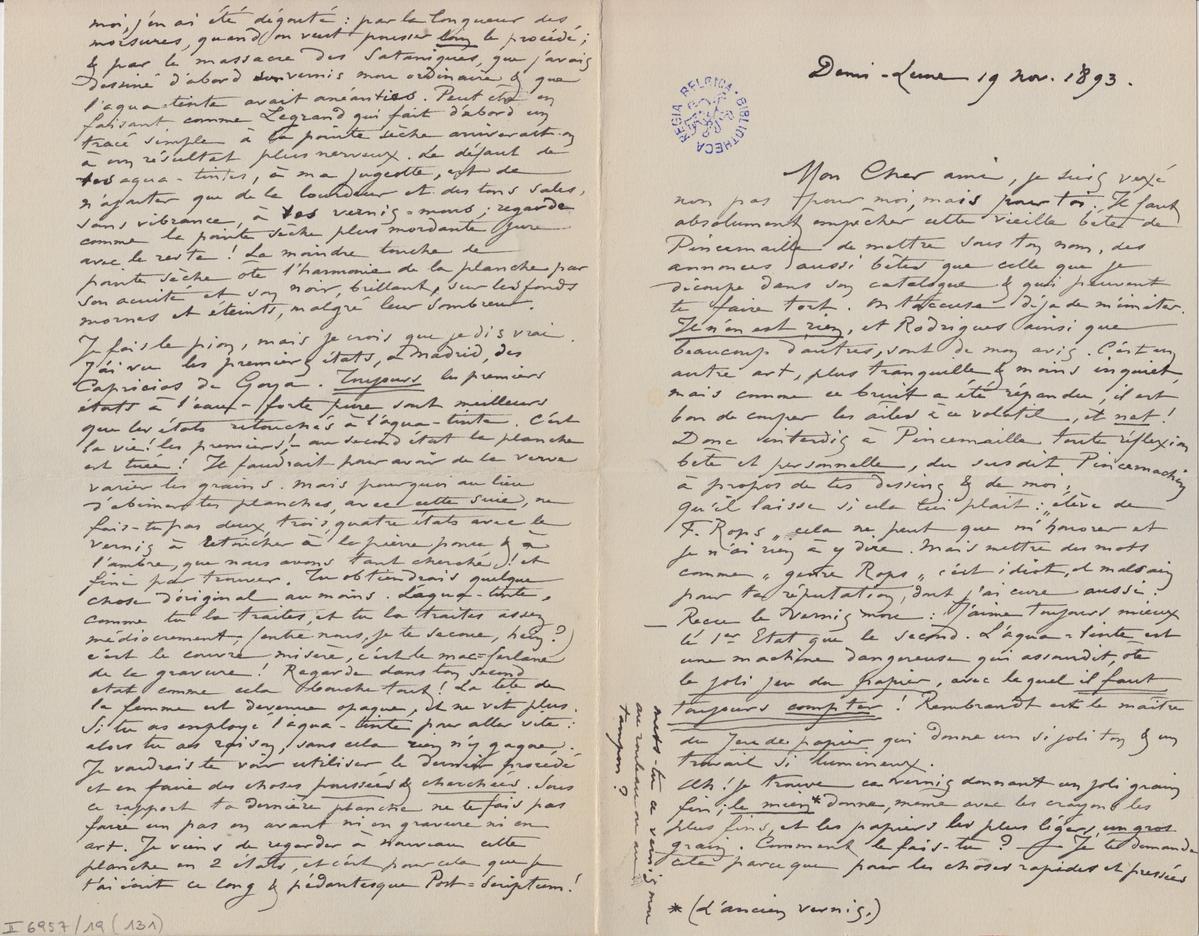 Demi-Lune 19 nov. 1893.
BIBLIOTHECA REGIA BELGICA
Mon Cher ami, je suis vexé
non pas pour moi, mais pour toi. Il faut
absolument empêcher cette vieille bête de
Pincemaille de mettre sous ton nom, des
annonces aussi bêtes que celle que je
découpe dans son catalogue & qui peuvent
te faire tort. On t'accuse déja de m'imiter.
Il n'en est rien, et Rodrigues ainsi que
beaucoup d'autres, sont de mon avis. C'est un
autre art, plus tranquille & moins inquiet,
mais comme ce bruit a été répandu, il est
bon de couper les ailes à ce volatil, et net!
Donc interdis à Pincemaille toute réflexion
bête et personnelle, du susdit Pincemachin
à propos de tes dessins & de moi,
qu'il laisse si cela lui plait: „élève de
F. Rops„ cela ne peut que m'honorer et
je n'ai rien à y dire. Mais mettre des mots
comme „genre Rops„ c'est idiot, et malsain
pour ta réputation, dont j'ai cure aussi.
— Reçu le vernis mou: J'aime toujours mieux
le 1er Etat que le second. L'aqua-tinte est
une machine dangereuse qui assourdit, ôte
le joli jeu du papier, avec lequel il faut
toujours compter! Rembrandt est le maître
du Jeu de papier qui donne un si joli ton & un
travail si lumineux.
Ah! je trouve ce vernis donnant un joli grain
fin; le mien* donne, même avec les crayons les
plus fins, et les papiers les plus légers, un gros
grain. Comment le fais-tu? — Je te demande
cela parceque pour les choses rapides et pressées
* (L'ancien vernis.)
mets-tu ce vernis mou
au rouleau ou au
tampon?
moi, j'en ai été dégouté: par la longueur des
morsures, quand on veut pousser loin le procédé;
& par le massacre des Sataniques, que j'avais
dessiné d'abord au vernis mou ordinaire & que
l'aqua-tinte avait anéanties. Peut être en
faisant comme Legrand qui fait d'abord un
tracé simple à la pointe sèche arriverait-on
à un résultat plus nerveux. Le défaut de
tes aqua-tintes, à ma jugeotte, est de
n'ajouter que de la lourdeur et des tons sales,
sans vibrance, à tes vernis-mous; regarde
comme la pointe sèche plus mordante jure
avec le reste! La moindre touche de
pointe sèche ote l'harmonie de la planche par
son acuité et son noir, brillant, sur les fonds
mornes et éteints, malgré leur sombreur.
Je fais le pion, mais je crois que je dis vrai.
J'ai vu les premiers états, à Madrid, des
Capricios de Goya. Toujours les premiers
états à l'eau-forte pure sont meilleurs
que les états retouchés à l'aqua-tinte. C'est
la vie! les premiers! – au second état la planche
est tuée! Il faudrait pour avoir de la verve
varier les grains. Mais pourquoi au lieu
d'abimer tes planches, avec cette suie, ne
fais-tu pas deux trois quatre états avec le
vernis à retoucher à la pierre ponce & à
l'ambre, que nous avons tant cherché! et
fini par trouver. Tu obtiendrais quelque
chose d'original au moins. L'aqua-tinte,
comme tu la traites, et tu la traites assez
médiocrement, (entre nous, je te secoue, hein?)
c'est le couvre misère, c'est le mac-ferlane
de la gravure! Regarde dans ton second
état comme cela bouche tout! La tête de
la femme est devenue opaque, et ne vit plus.
Si tu as employé l'aqua-tinte pour aller vite:
alors tu as raison, sans cela rien n'y gagne.
Je voudrais te voir utiliser le dernier procédé
et en faire des choses poussées & cherchées. Sous
ce rapport ta dernière planche ne te fais pas
faire un pas en avant ni en gravure ni en
art. Je viens de regarder à nouveau cette
planche en 2 états, et c'est pour cela que je
t'ai écrit ce long & pédantesque Post-Scriptum!
II 6957/19 (131)